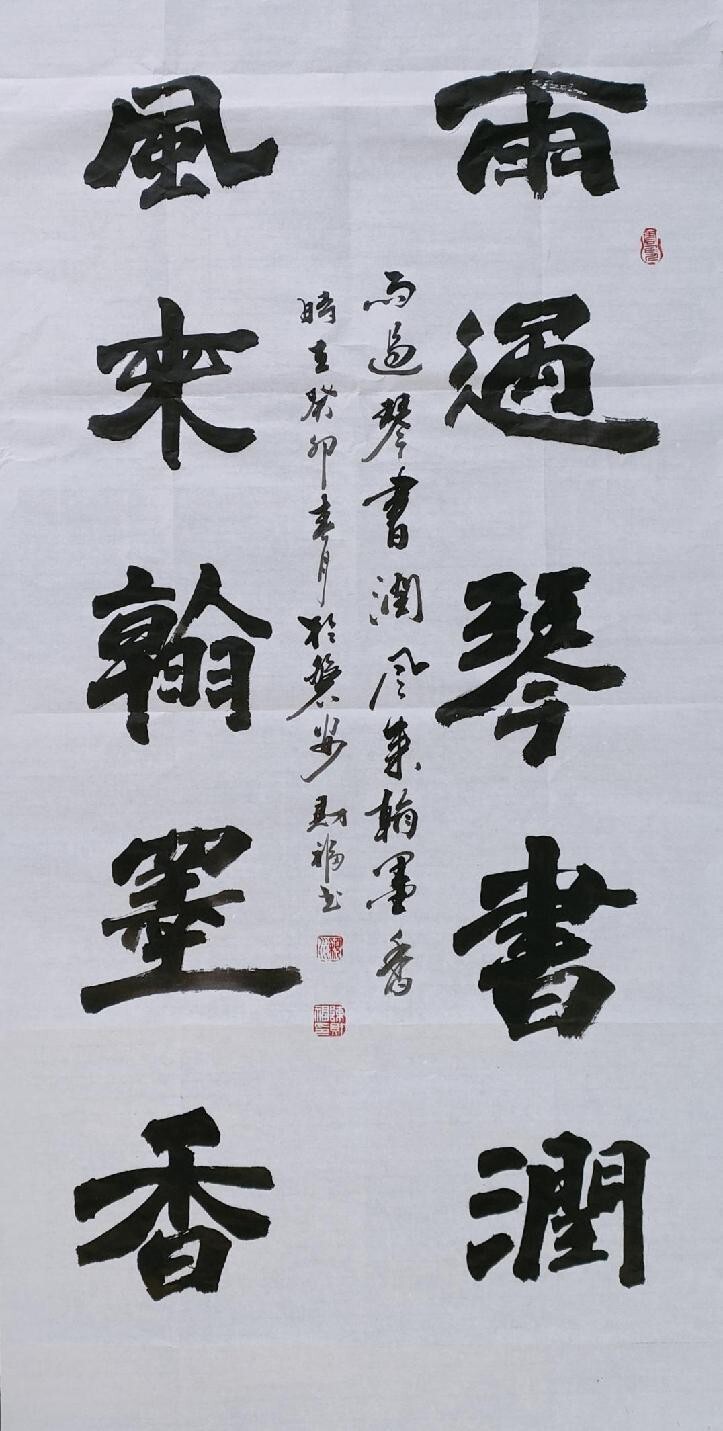 雨過琴書潤
風來翰墨香
雨過琴書潤風來翰墨香
時在癸卯春月於龔安財福書